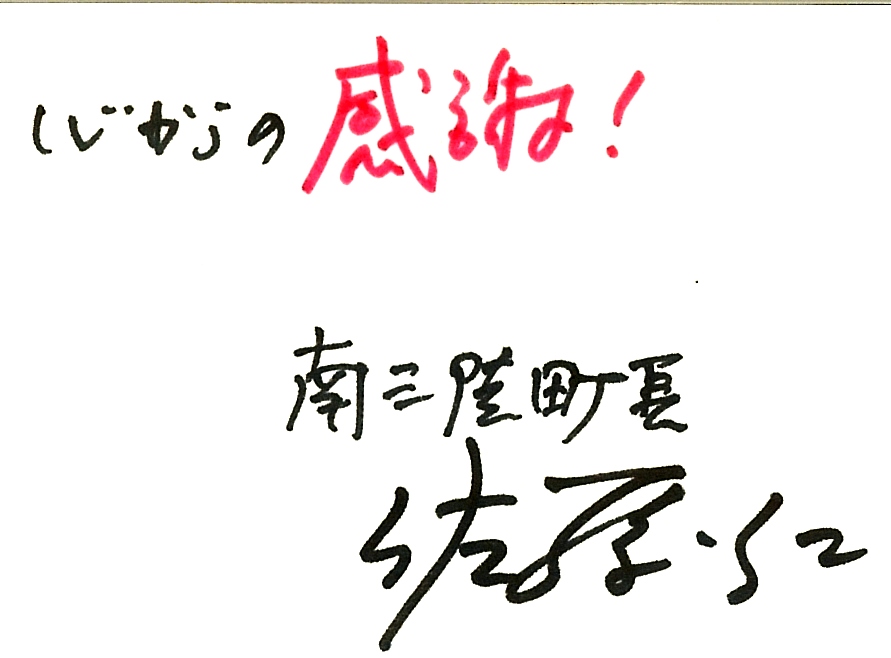 心からの感謝!
南三陸町長
佐藤 仁